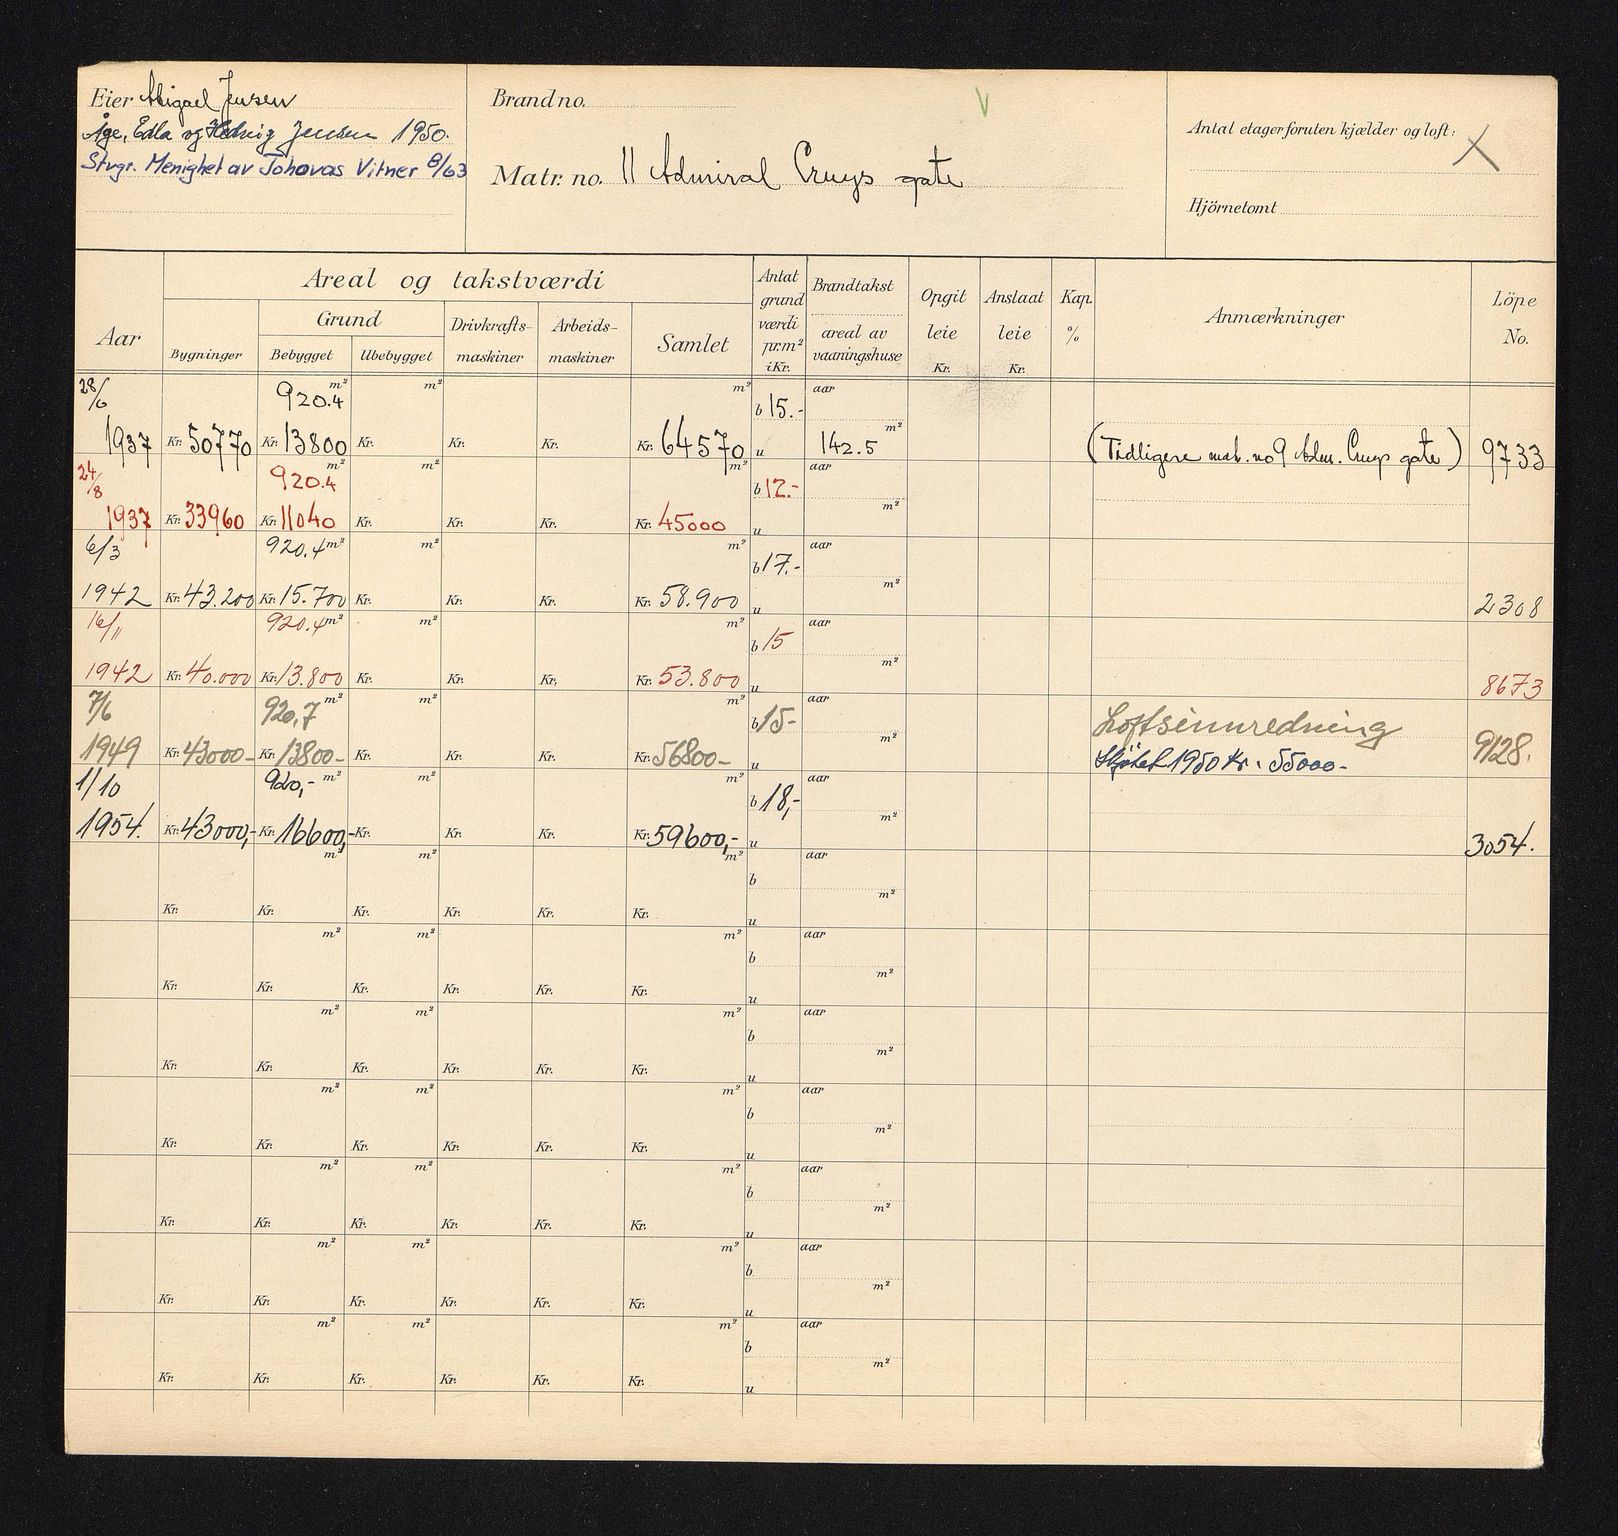 Eier Abigael Jensen
Åge, Edla og Hedvig Jensen 1950.
Stvgr. Menighet av Jehovas Vitner 8/63
Brand no.
Matr. no. 11 Admiral Cruys gate
V
Antal etager foruten kjælder og loft: X
Hjörnetomt
Aar
Areal og takstværdi
Bygninger
Grund
Bebygget
Ubebygget
Drivkrafts-
maskiner
Arbeids-
maskiner
Samlet
Antat
grund
værdi
pr.m²
i Kr.
Brandtakst
areal av
vaaningshuse
Opgit
leie
Kr.
Anslaat
leie
Kr.
Kap.
%
Anmærkninger
Löpe
No.
28/6 920.4 m² m² m² b 15.- aar
1937 Kr. 50770 Kr. 13800 Kr. Kr. Kr. Kr. 64570 u 142.5 m² (Tidligere matr. no 9 Adm. Cruys gate) 9733
24/8 920.4 m² m² m² b 12.- aar
1937 Kr. 33960 Kr. 11040 Kr. Kr. Kr. Kr. 45000 u m²
6/3 920.4 m² m² m² b 17.- aar
1942 Kr. 43.200 Kr. 15.700 Kr. Kr. Kr. Kr. 58.900 u m² 2308
16/11 920.4 m² m² m² b 15 aar
1942 Kr. 40.000 Kr. 13.800 Kr. Kr. Kr. Kr. 53.800 u m² 8673
7/6 920,7 m² m² m² b 15- aar Loftsinnredning
1949 Kr. 43000- Kr. 13800- Kr. Kr. Kr. Kr. 56800- u m² Skjøtet 1950 kr. 55000- 9128.
1/10 920,- m² m² m² b 18,- aar
1954. Kr. 43000,- Kr. 16600,- Kr. Kr. Kr. Kr. 59600,- u m² 3054.
m² m² m² b aar
Kr. Kr. Kr. Kr. Kr. Kr. u m²
m² m² m² b aar
Kr. Kr. Kr. Kr. Kr. Kr. u m²
m² m² m² b aar
Kr. Kr. Kr. Kr. Kr. Kr. u m²
m² m² m² b aar
Kr. Kr. Kr. Kr. Kr. Kr. u m²
m² m² m² b aar
Kr. Kr. Kr. Kr. Kr. Kr. u m²
m² m² m² b aar
Kr. Kr. Kr. Kr. Kr. Kr. u m²
m² m² m² b aar
Kr. Kr. Kr. Kr. Kr. Kr. u m²